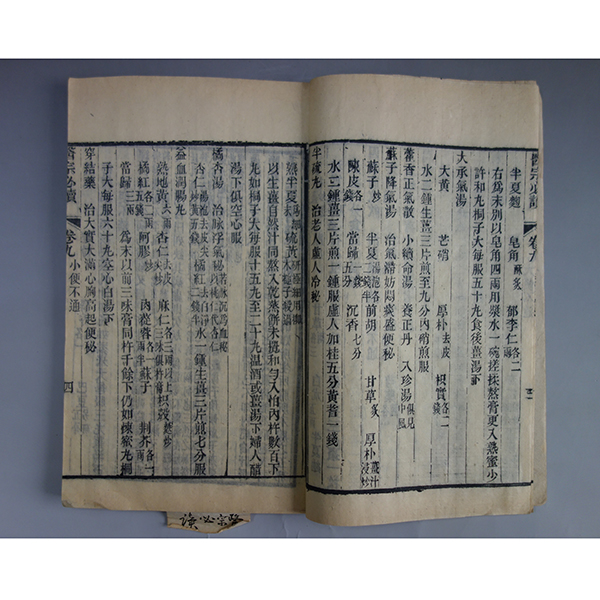 半夏麯 皂角酥炙 郁李仁各二兩
右為末別以皂角四兩用漿水一碗搓揉熬膏更入熟蜜少
許和丸桐子大每服五十九食後薑湯下
大承氣湯
大黃 芒硝 厚朴去皮 枳實各二錢
水二鍾生薑三片煎至九分內硝煎服
藿香正氣散 小續命湯 養正丹 入珍湯俱見中風
蘇子降氣湯 治氣滯妨悶痰盛便秘
蘇子炒 半夏湯泡各二錢半 前胡 甘草炙 厚朴薑汁浸炒
陳皮各一錢 當歸一錢五分 沉香七分
水二鍾薑三片煎一鍾服虛人加桂五分黃耆一錢
半硫丸 治老人虛人冷秘
以生薑自然汁同熬入乾蒸餅末攪和勻入怕內杵數百下
丸如桐子大每服十五九至二十九溫酒或薑湯下婦人醋
湯下俱空心服
橘杏湯 治脉浮氣秘
水一鍾生薑三片煎七分服
益血潤腸丸
熟地黃 杏仁 麻仁
橘紅 阿膠炒 肉蓯蓉 蘇子 荊芥各一兩
當歸三兩 為末以前三味膏同杵千餘下仍如煉蜜丸桐
子大每服六十九空心白湯下
穿結藥 治大實大滿心胸高起便秘
醫宗必讀 卷九 小便不通 四
醫宗必讀